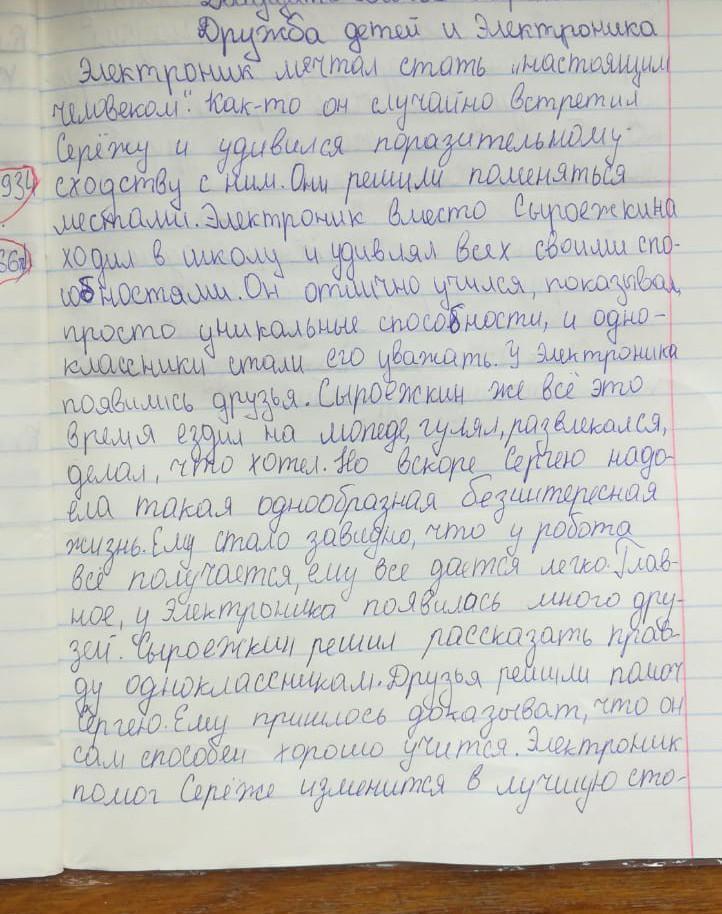 Дружба детей и Электроника
Электроник мечтал стать „настоящим
человеком". Как-то он случайно встретил
Серёжу и удивился поразительному
сходству с ним. Они решили поменяться
местами. Электроник вместо Сыроежкина
934
ходил в школу и удивлял всех своими спо-
собностями. Он отлично учился, показывал
просто уникальные способности, и одно-
классники стали его уважать. У Электроника
появились друзья. Сыроежкин же всё это
время ездил на мопеде, гулял, развлекался,
делал, что хотел. Но вскоре Сергею надо-
ела такая однообразная безинтересная
жизнь. Ему стало завидно, что у робота
всё получается, ему все дается легко. Глав-
ное, у Электроника появилась много дру-
зей. Сыроежкин решил рассказать прав-
ду одноклассникам. Друзья решили помоч
Сергею. Ему пришлось доказыват, что он
сам способен хорошо учится. Электроник
помог Серёже изменится в лучшую сто-